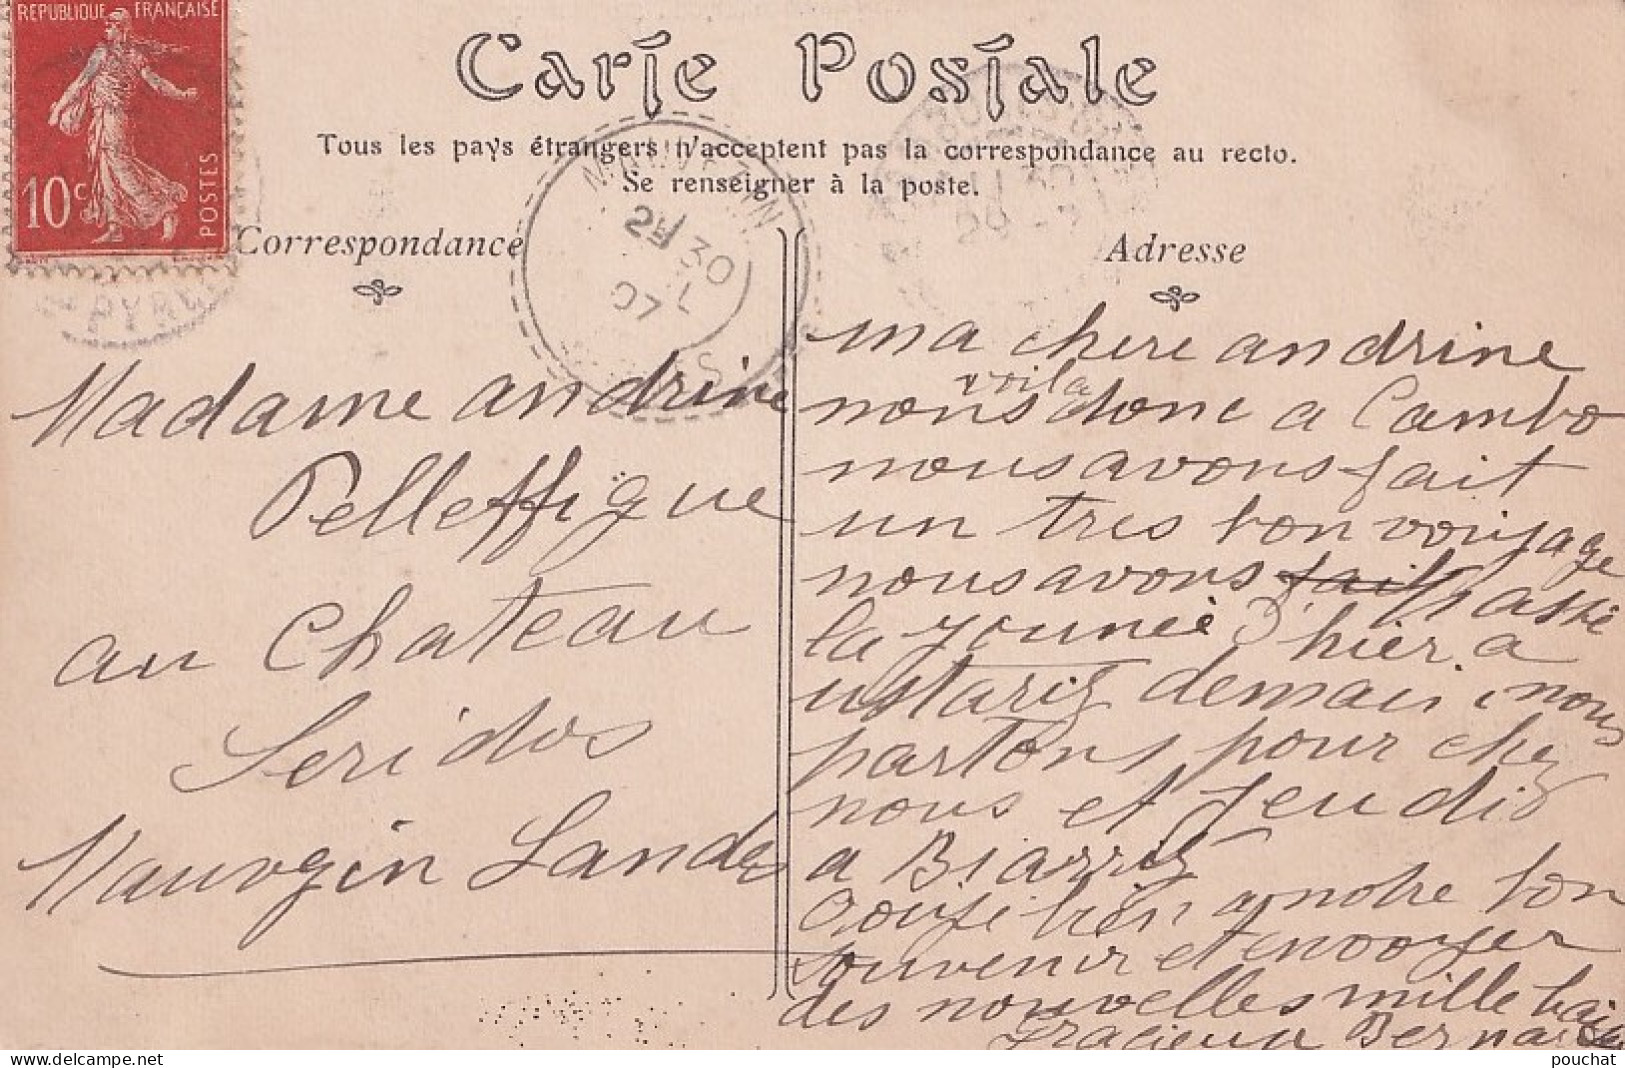 REPUBLIQUE FRANÇAISE
10c
POSTES
Carte Postale
Tous les pays étrangers n'acceptent pas la correspondance au recto.
Se renseigner à la poste.
Correspondance
30
07
Madame andrine
Pelleffigue
au Chateau
Seridos
Mauvgin Landes
Adresse
ma chere andrine
voila
nous donc a Cambo
nous avons fait
un tres bon voyage
nous avons fait passé
la jounée d'hier a
ustariz demain nous
partons pour chez
nous et jeudi
a Biarriz
bien a notre bon
souvenir et envoyer
des nouvelles mille bai
Gracieux Bernard
pouchat